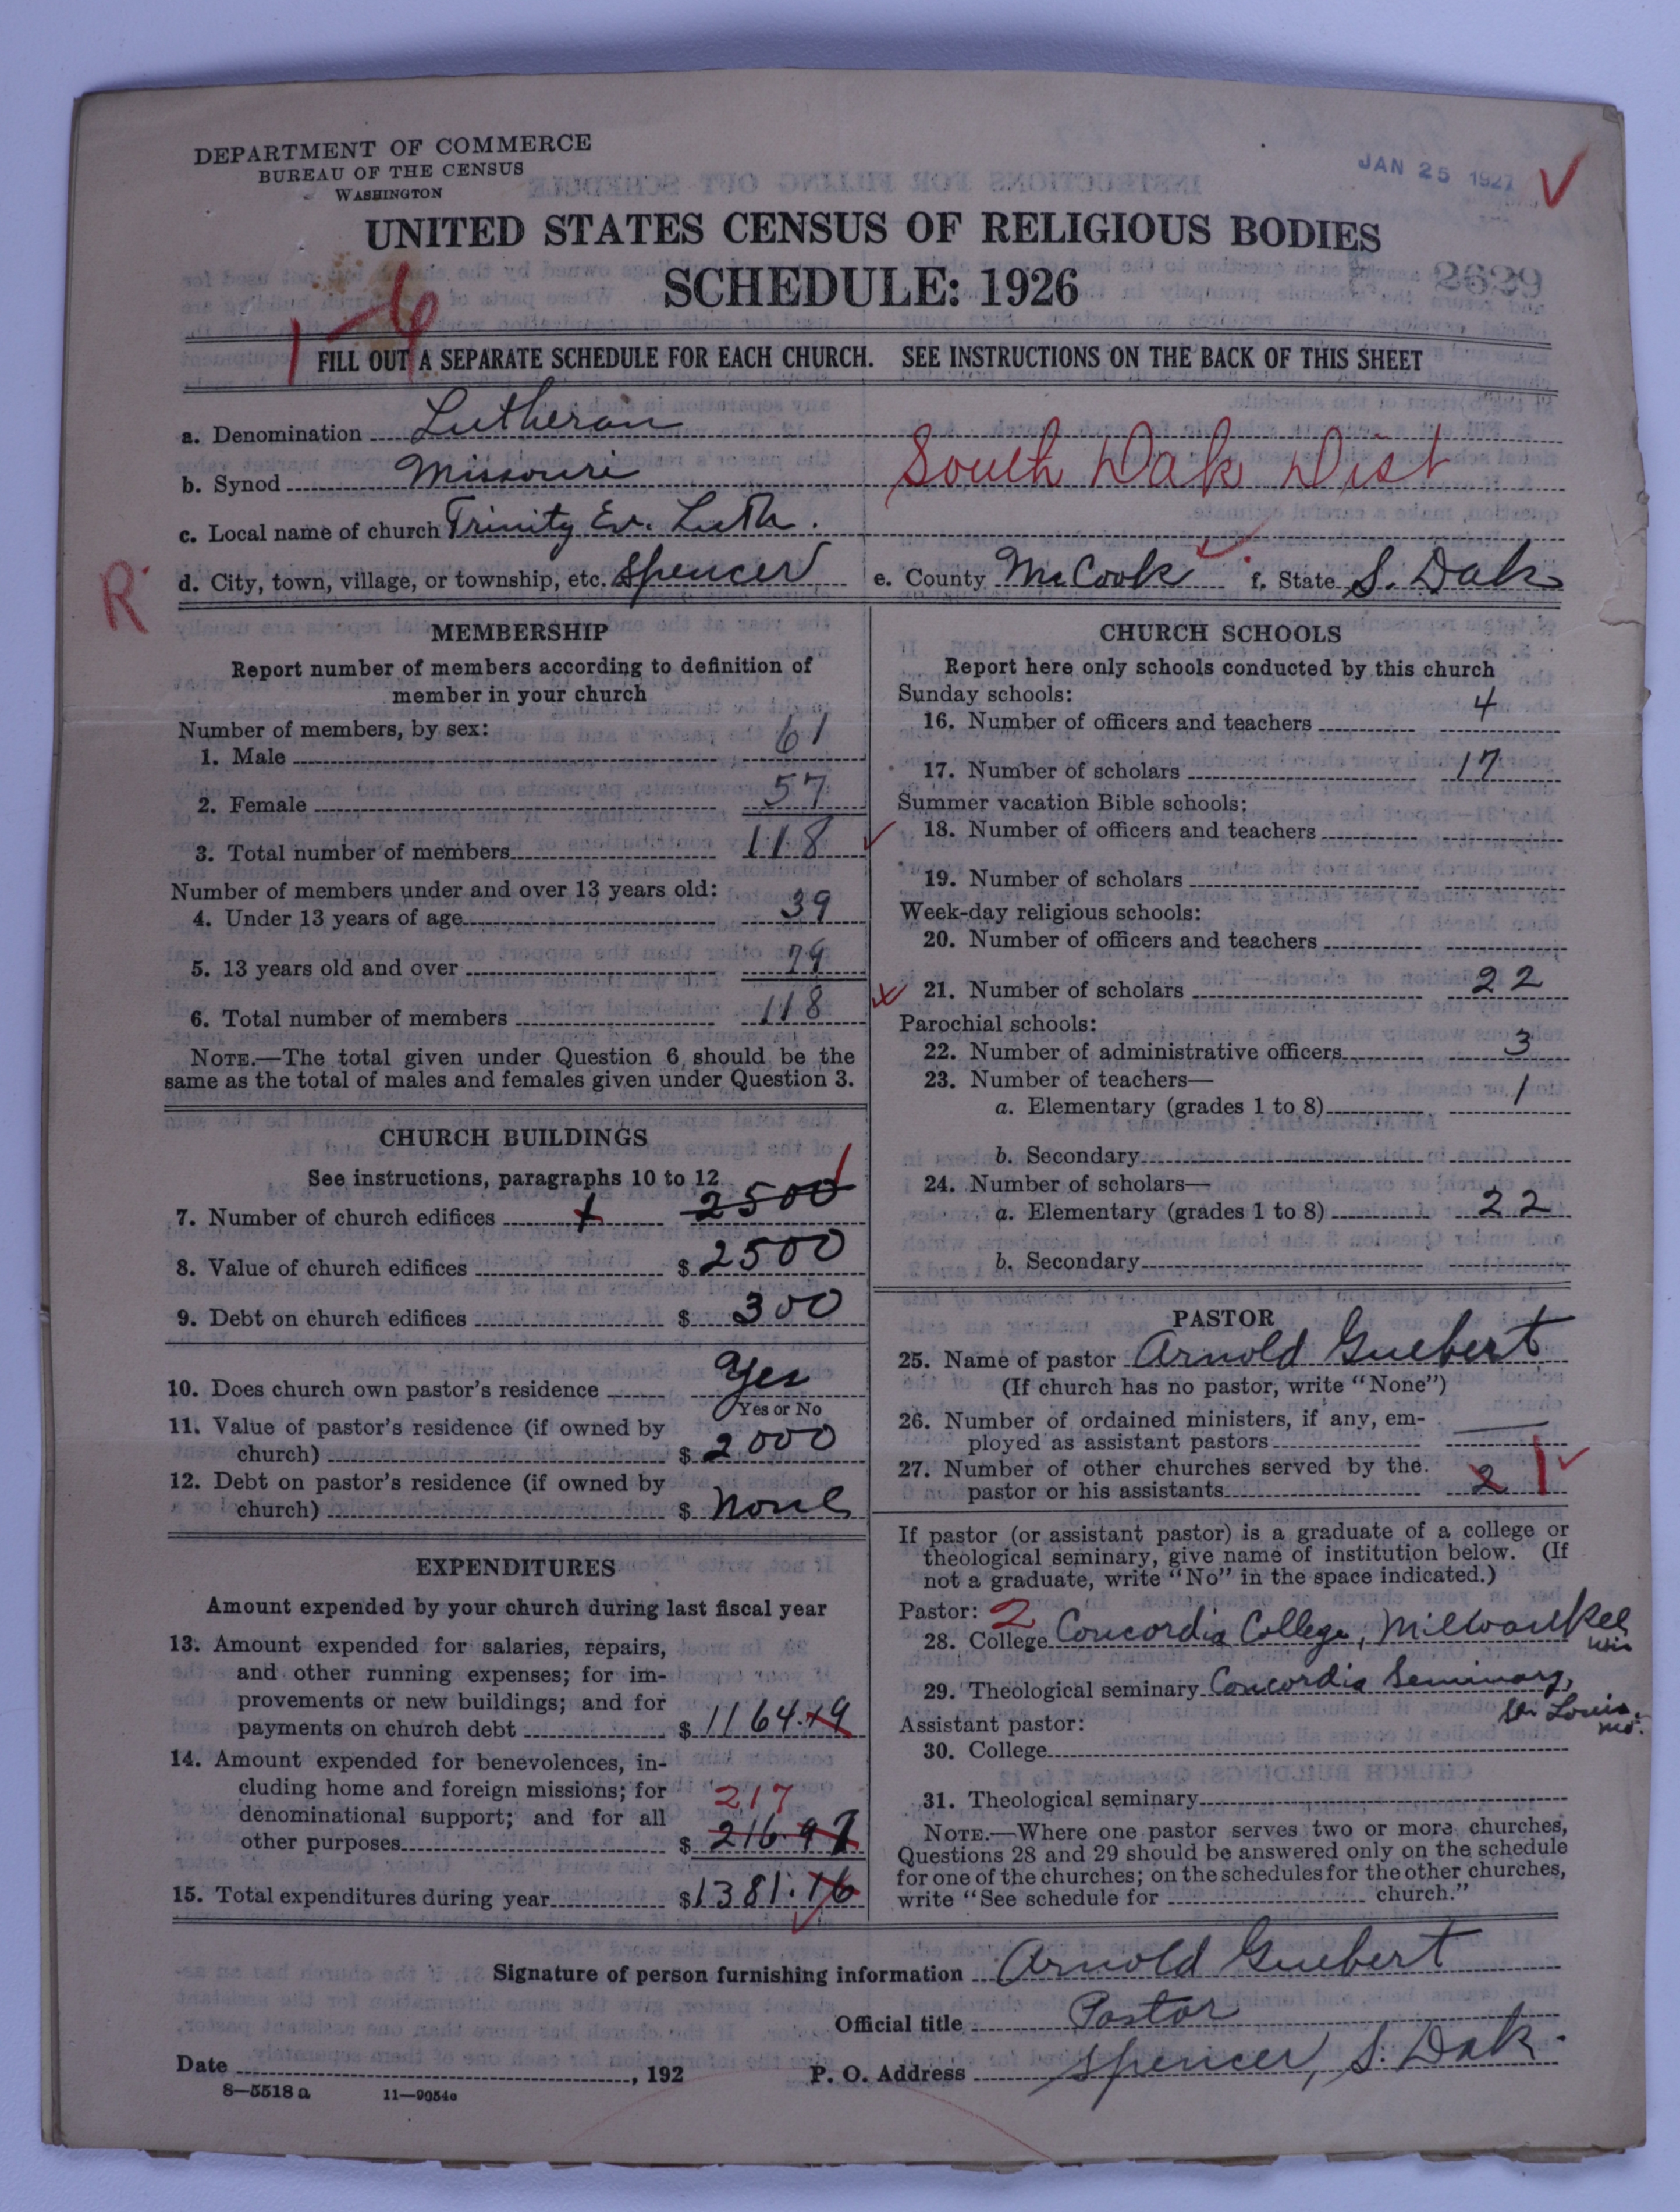 DEPARTMENT OF COMMERCE
BUREAU OF THE CENSUS
WASHINGTON
JAN 25 1927
UNITED STATES CENSUS OF RELIGIOUS BODIES
SCHEDULE: 1926
2629
1-6
FILL OUT A SEPARATE SCHEDULE FOR EACH CHURCH. SEE INSTRUCTIONS ON THE BACK OF THIS SHEET
a. Denomination Lutheran
b. Synod Missouri South Dak Dist
c. Local name of church Trinity Ev. Luth.
R
d. City, town, village, or township, etc. Spencer e. County McCook f. State S. Dak
MEMBERSHIP
Report number of members according to definition of
member in your church
Number of members, by sex:
1. Male 61
2. Female 57
3. Total number of members 118
Number of members under and over 13 years old:
4. Under 13 years of age 39
5. 13 years old and over 79
6. Total number of members 118
NOTE.—The total given under Question 6 should be the
same as the total of males and females given under Question 3.
CHURCH BUILDINGS
See instructions, paragraphs 10 to 12
7. Number of church edifices 2500 1
8. Value of church edifices $ 2500
9. Debt on church edifices $ 300
10. Does church own pastor's residence Yes
Yes or No
11. Value of pastor's residence (if owned by
church) $ 2000
12. Debt on pastor's residence (if owned by
church) $ None
EXPENDITURES
Amount expended by your church during last fiscal year
13. Amount expended for salaries, repairs,
and other running expenses; for im-
provements or new buildings; and for
payments on church debt $ 1164.19
14. Amount expended for benevolences, in-
cluding home and foreign missions; for
217
denominational support; and for all
other purposes $ 216.97
15. Total expenditures during year $1381.16
CHURCH SCHOOLS
Report here only schools conducted by this church
Sunday schools:
16. Number of officers and teachers 4
17. Number of scholars 17
Summer vacation Bible schools:
18. Number of officers and teachers
19. Number of scholars
Week-day religious schools:
20. Number of officers and teachers
21. Number of scholars 22
Parochial schools:
22. Number of administrative officers 3
23. Number of teachers—
a. Elementary (grades 1 to 8) 1
b. Secondary
24. Number of scholars—
a. Elementary (grades 1 to 8) 22
b. Secondary
PASTOR
25. Name of pastor Arnold Guebert
(If church has no pastor, write "None")
26. Number of ordained ministers, if any, em-
ployed as assistant pastors —
27. Number of other churches served by the
pastor or his assistants 2 1
If pastor (or assistant pastor) is a graduate of a college or
theological seminary, give name of institution below. (If
not a graduate, write "No" in the space indicated.)
Pastor: 2
28. College Concordia College, Milwaukee
Wis
29. Theological seminary Concordia Seminary,
St. Louis.
Mo.
Assistant pastor:
30. College
31. Theological seminary
NOTE.—Where one pastor serves two or more churches,
Questions 28 and 29 should be answered only on the schedule
for one of the churches; on the schedules for the other churches,
write "See schedule for church."
Signature of person furnishing information Arnold Guebert
Official title Pastor
Date , 192 P. O. Address Spencer, S. Dak.
8—5518 a 11—9054a